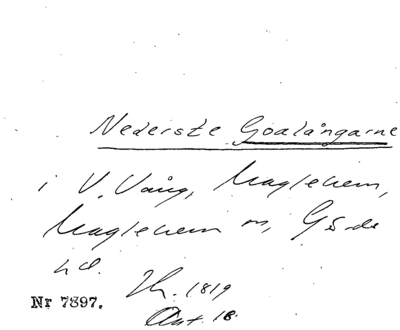 Nederste Goalångarne
i V. Vång, Maglehem,
Maglehem sn, Gärds
hd.
Nr 7897.
1819
Akt. 18.